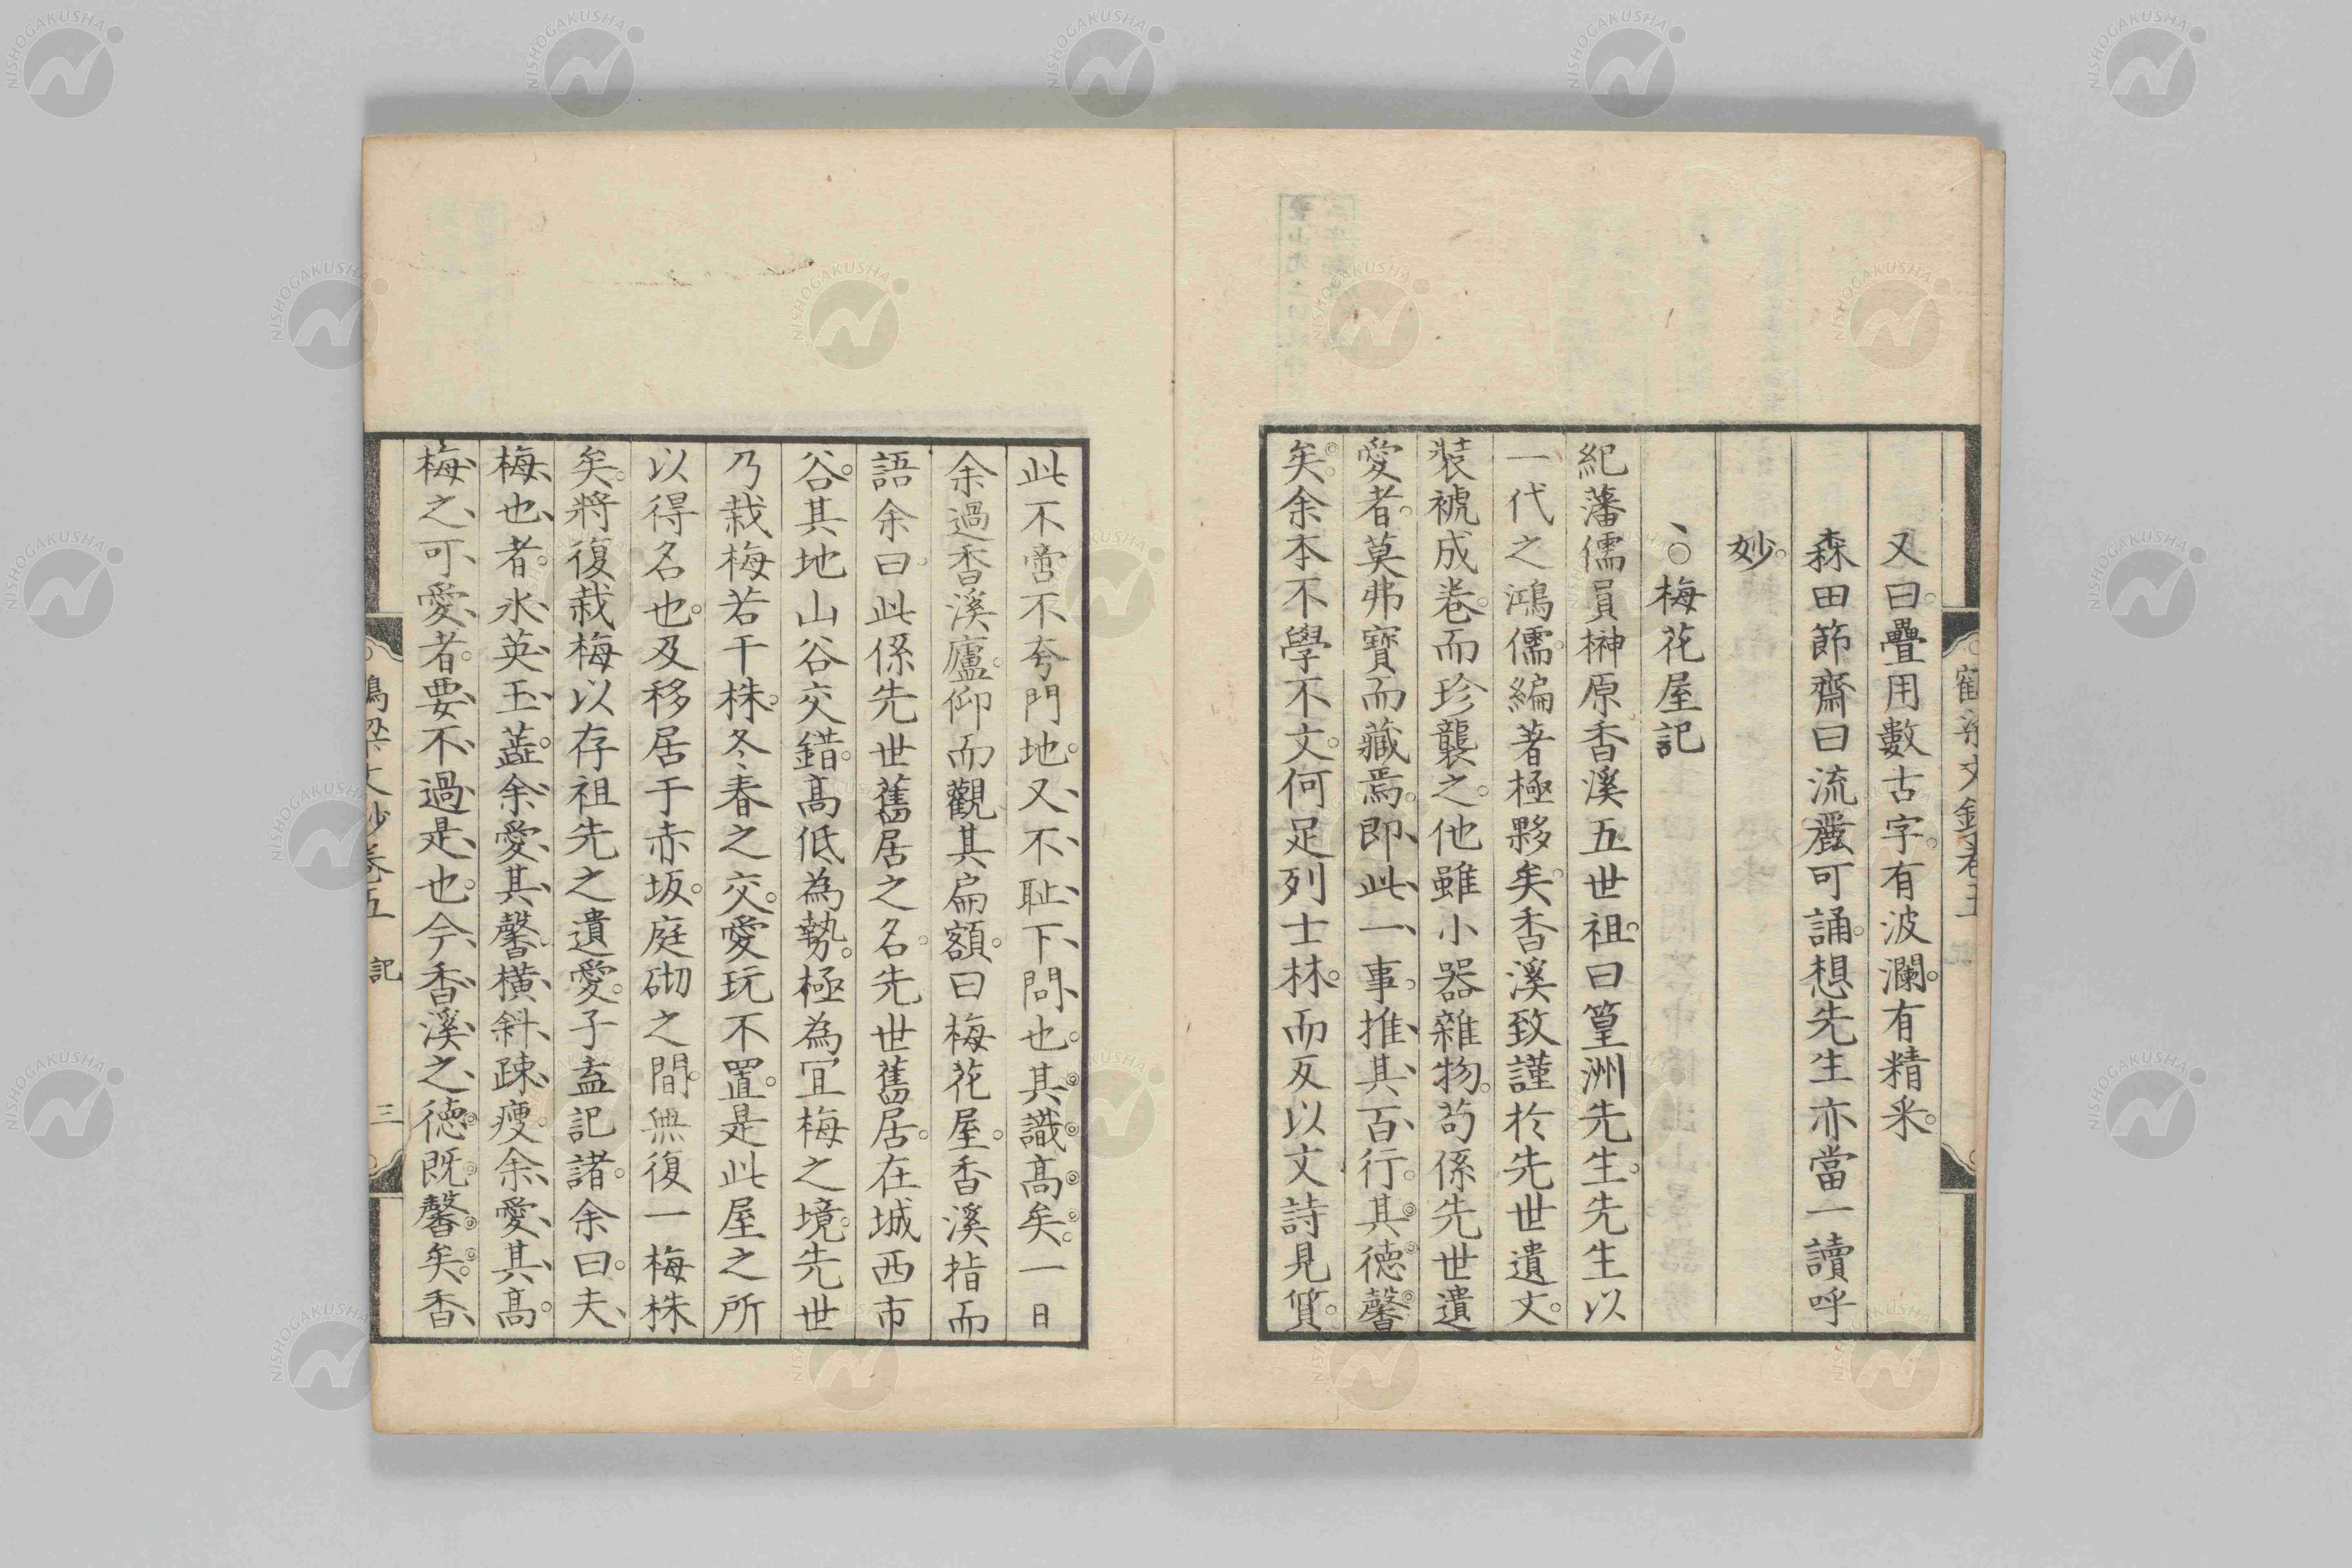 又曰疊用數古字有波瀾有精采
森田節齋曰流麗可誦想先生亦當一讀呼
妙
、○梅花屋記
紀藩儒員榊原香溪五世祖曰篁洲先生先生以
一代之鴻儒編著極夥矣香溪致謹於先世遺文
裝褫成卷而珍襲之他雖小器雜物苟係先世遺
愛者莫弗寶而藏焉即此一事推其百行其德馨
矣余本不學不文何足列士林而反以文詩見質
此不啻不夸門地又不耻下問也其識高矣一日
余過香溪廬仰而觀其扁額曰梅花屋香溪指而
語余曰此係先世舊居之名先世舊居在城西市
谷其地山谷交錯高低為勢極為宜梅之境先世
乃栽梅若干株冬春之交愛玩不置是此屋之所
以得名也及移居于赤坂庭砌之間無復一梅株
矣將復栽梅以存祖先之遺愛子盍記諸余曰夫
梅也者氷英玉蕋余愛其馨橫斜疎瘦余愛其高
梅之可愛者要不過是也今香溪之德既馨矣香
文鈔卷五 記 三
NISHOGAKUSHA